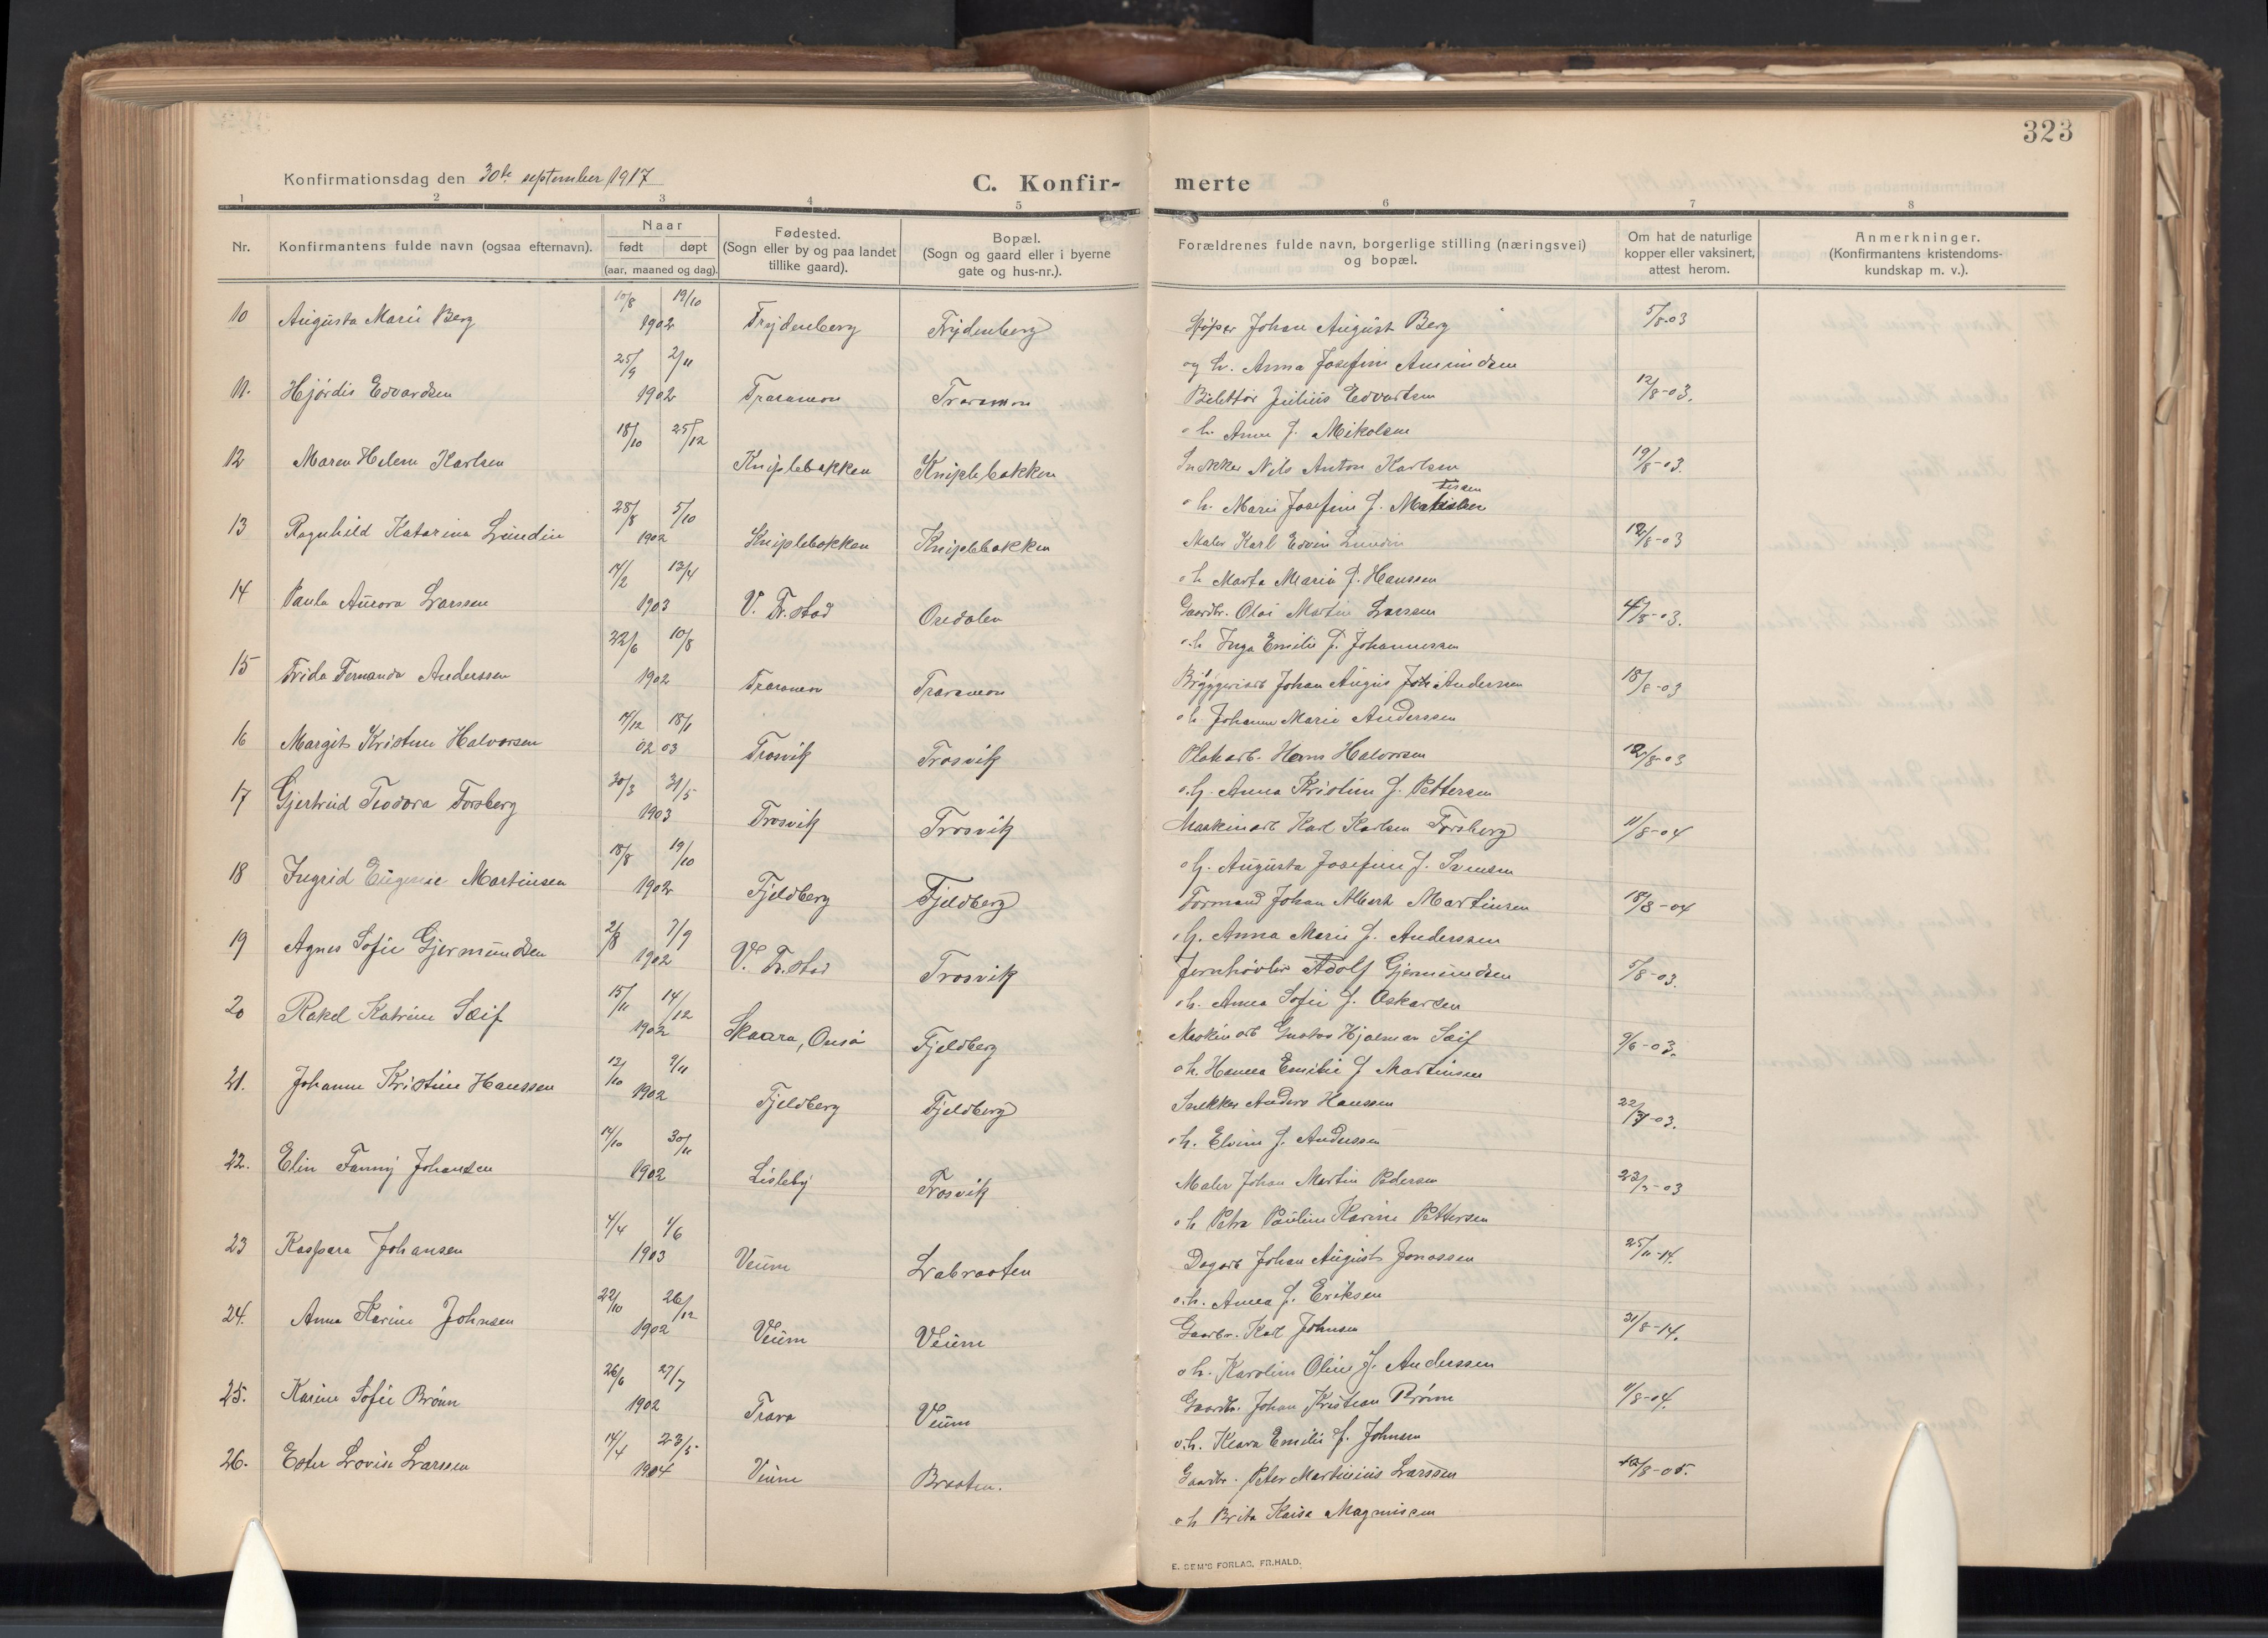 323
Konfirmationsdag den 30te september 1917
C. Konfirmerte
1 2 3 4 5 6 7 8
Nr. Konfirmantens fulde navn (ogsaa efternavn). Naar født døpt (aar, maaned og dag). Fødested. (Sogn eller by og paa landet tillike gaard). Bopæl. (Sogn og gaard eller i byerne gate og hus-nr.). Forældrenes fulde navn, borgerlige stilling (næringsvei) og bopæl. Om hat de naturlige kopper eller vaksinert, attest herom. Anmerkninger. (Konfirmantens kristendoms-kundskap m. v.).
10 Augusta Marie Berg 10/8 19/10 1902 Frydenberg Frydenberg Støper Johan August Berg 5/8-03
og h. Anna Josefine Amundsen
11. Hjørdis Edvardsen 25/9 2/11 1902 Traramon Traramon Julius Edvartsen 12/8-03.
o h. Anna J. Mikolsen
12 Maren Helene Karlsen 18/10 25/12 Kniplebakken Kniplebakken Snekker Nils Anton Karlsen 19/8-03.
o h. Marie Josefine J.
13 Ragnhild Katarina Lundin 28/8 5/10 1902 Kniplebakken Kniplebakken Maler Karl Edvin Lundin 12/8-03
o h Marta Marie J. Hanssen
14 Paula Aurora Larssen 14/2 13/4 1903 V. Fr.stad Oredalen Gaardbr. Olai Martin Larssen 4/8-03.
o.h Inga Emilie J. Johannessen
15 Frida Fernanda Anderssen 22/6 10/8 1902 Traramon Traramon Bryggeriarb Johan August Anderssen 18/8-03
o h. Johanne Marie Anderssen
16 Margit Kristine Halvorsen 14/12 18/1 02 03 Trosvik Trosvik Platearb. Hans Halvorsen 12/8-03
o.h. Anna Kristine J. Pettersen
17 Gjertrud Teodora Forsberg 30/3 31/5 1903 Trosvik Trosvik Maskinarb Karl Karlsen Forsberg 11/8-04
o h. Augusta Josefine J. Svensen
18 Ingrid Eugenie Martinsen 18/8 19/10 1902 Fjeldberg Fjeldberg Formand Johan Albert Martinsen 18/8-04
o h. Anna Marie J. Anderssen
19 Agnes Sofie Gjermundsen 2/8 7/9 1902 V. Fr.stad Trosvik Jernhøvler Adolf Gjermundsen 5/8-03.
o h. Anna Sofie J. Oskarsen
20 Rakel Katrine Seif 15/11 14/12 1902 Skaara, Onsø Fjeldberg Maskinarb Gustav Hjalmar Seif 9/6-03.
o h. Hanna Emilie J Martinsen
21. Johanne Kristine Hanssen 12/10 9/11 1902 Fjeldberg Fjeldberg Snekker Anders Hanssen 22/7-03.
o h. Elvine J. Anderssen
22. Elin Fanny Johansen 14/10 30/11 1902 Lisleby Trosvik Maler Johan Martin Pedersen 23/7-03
o h Petra Pauline Karine Pettersen
23 Kaspara Johansen 4/4 1/6 1903 Veum Labraaten Dagarb Johan August Jonassen 25/11-14.
o.h. Anna J. Eriksen
24. Anna Karine Johnsen 22/10 26/12 1902 Veum Veum Gaardbr. Karl Johnsen 31/8-14.
o h. Karoline Oline J. Anderssen
25. Karine Sofie Brønn 26/6 27/7 1902 Trara Veum Gaardbr. Johan Kristian Brønn 11/8-04.
o.h. Klara Emilie J. Johnsen
26. Ester Lovise Larssen 14/4 23/5 1904 Veum Braaten. Gaardbr. Peter Martinius Larssen 12/8-05.
o h Brita Kaisa Magnussen
E. SEM'S FORLAG, FR.HALD.